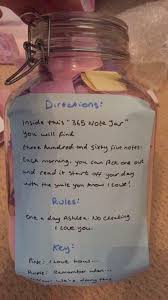 Directions:
Inside this "365 Note Jar"
you will find
three hundred and sixty five notes.
Each morning, you can pick one out
and read it start off your day
with the smile you know I love!
Rules:
One a day Ashlea. No cheating
I love you.
Key:
Pink: I love how...
Purple: Remember when...
we've done this